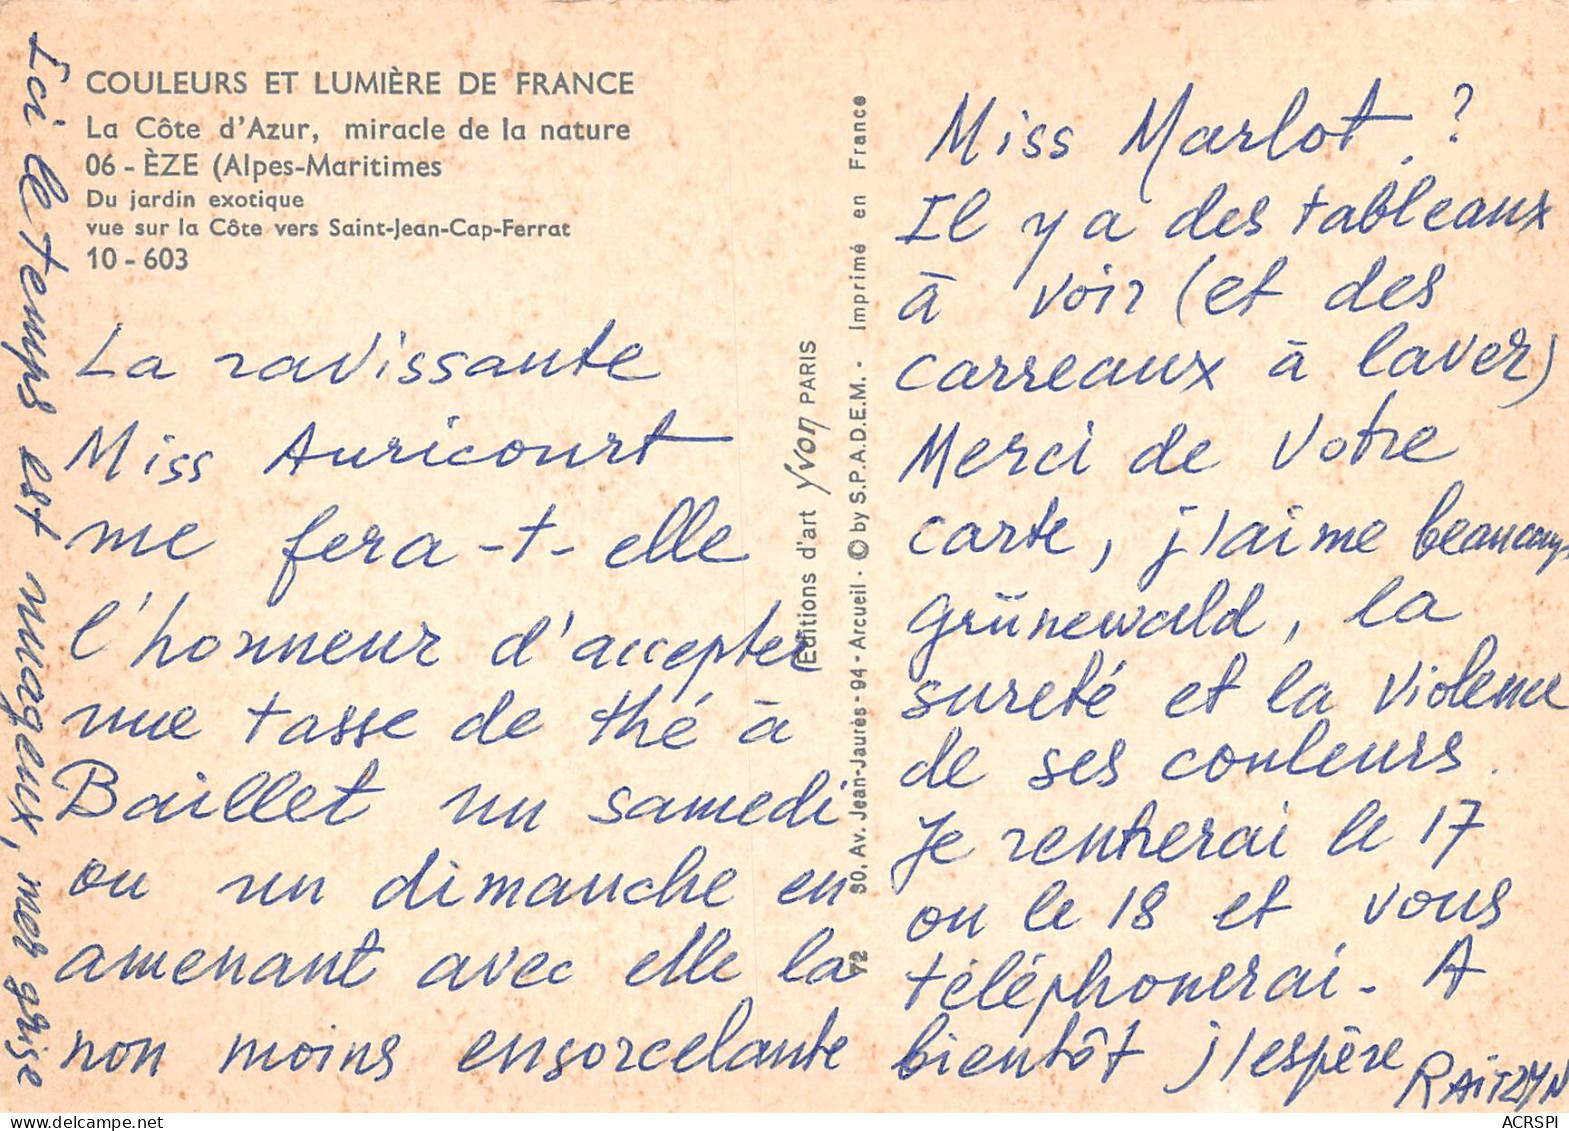 COULEURS ET LUMIÈRE DE FRANCE
La Côte d'Azur, miracle de la nature
06 - ÈZE (Alpes-Maritimes
Du jardin exotique
vue sur la Côte vers Saint-Jean-Cap-Ferrat
10 - 603
La ravissante
Miss Auricourt
me fera-t-elle
l'honneur d'accepter
une tasse de thé à
Baillet un samedi
ou un dimanche en
amenant avec elle la
non moins ensorcelante
Miss Marlot ?
Il y a des tableaux
à voir (et des
carreaux à laver)
Merci de votre
carte, j'aime beaucoup
Grünewald, la
sureté et la violence
de ses couleurs.
Je rentrerai le 17
ou le 18 et vous
téléphonerai - A
bientôt j'espère
RAITZYN
Ici le temps est nuageux, mer grise
Éditions d'art Yvon PARIS
72 80, Av. Jean-Jaurès - 94 - Arcueil - © by S.P.A.D.E.M. - Imprimé en France
ACRSPI